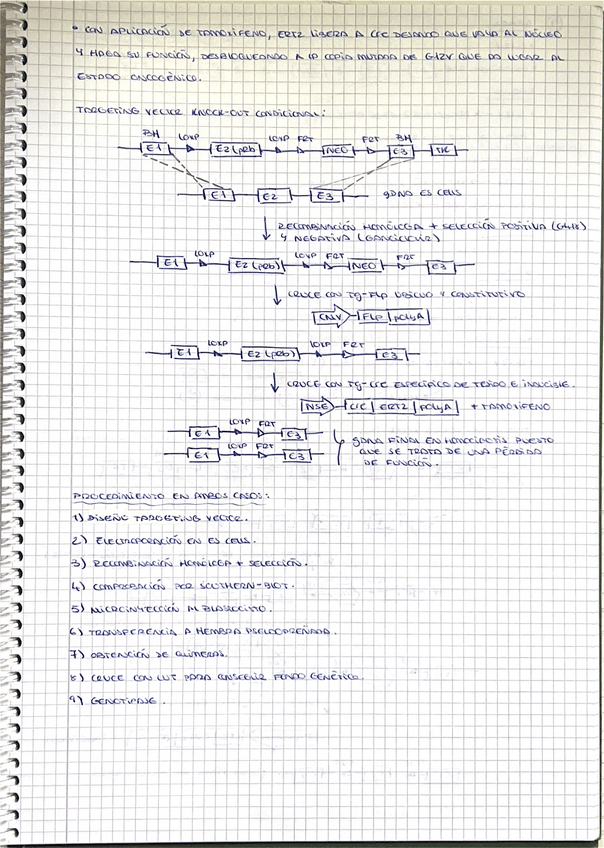 • CON APLICACIÓN DE TAMOXIFENO, ERT2 LIBERA A CRE DEJANDO QUE VAYA AL NÚCLEO
Y HAGA SU FUNCIÓN, DESBLOQUEANDO A LA COPIA MUTADA DE G12V QUE DA LUGAR AL
ESTADO ONCOGÉNICO.
TARGETING VECTOR KNOCK-OUT CONDICIONAL:
BH LOXP LOXP FRT FRT BH
E1 E2 (pRb) NEO E3 TK
E1 E2 E3 gDNA ES CELLS
RECOMBINACIÓN HOMÓLOGA + SELECCIÓN POSITIVA (G418)
Y NEGATIVA (GANCICLOVIR)
LOXP LOXP FRT FRT
E1 E2 (pRb) NEO E3
CRUCE CON Tg-Flp UBICUO Y CONSTITUTIVO
CMV Flp polyA
LOXP LOXP FRT
E1 E2 (pRb) E3
CRUCE CON Tg-CRE ESPECÍFICO DE TEJIDO E INDUCIBLE.
NSE CRE ERT2 POLYA + TAMOXIFENO
LOXP FRT
E1 E3
LOXP FRT
E1 E3
gDNA FINAL EN HOMOCIGOSIS PUESTO
QUE SE TRATA DE UNA PÉRDIDA
DE FUNCIÓN.
PROCEDIMIENTO EN AMBOS CASOS:
1) DISEÑO TARGETING VECTOR.
2) ELECTROPORACIÓN EN ES CELLS.
3) RECOMBINACIÓN HOMÓLOGA + SELECCIÓN.
4) COMPROBACIÓN POR SOUTHERN-BLOT.
5) MICROINYECCIÓN AL BLASTOCISTO.
6) TRANSFERENCIA A HEMBRA PSEUDOPREÑADA.
7) OBTENCIÓN DE QUIMERAS.
8) CRUCE CON WT PARA FONDO GENÉTICO.
9) GENOTIPAJE.